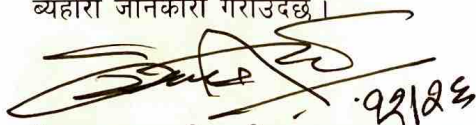 ब्यहोरा जानकारी गराउदछ।
१२/२६